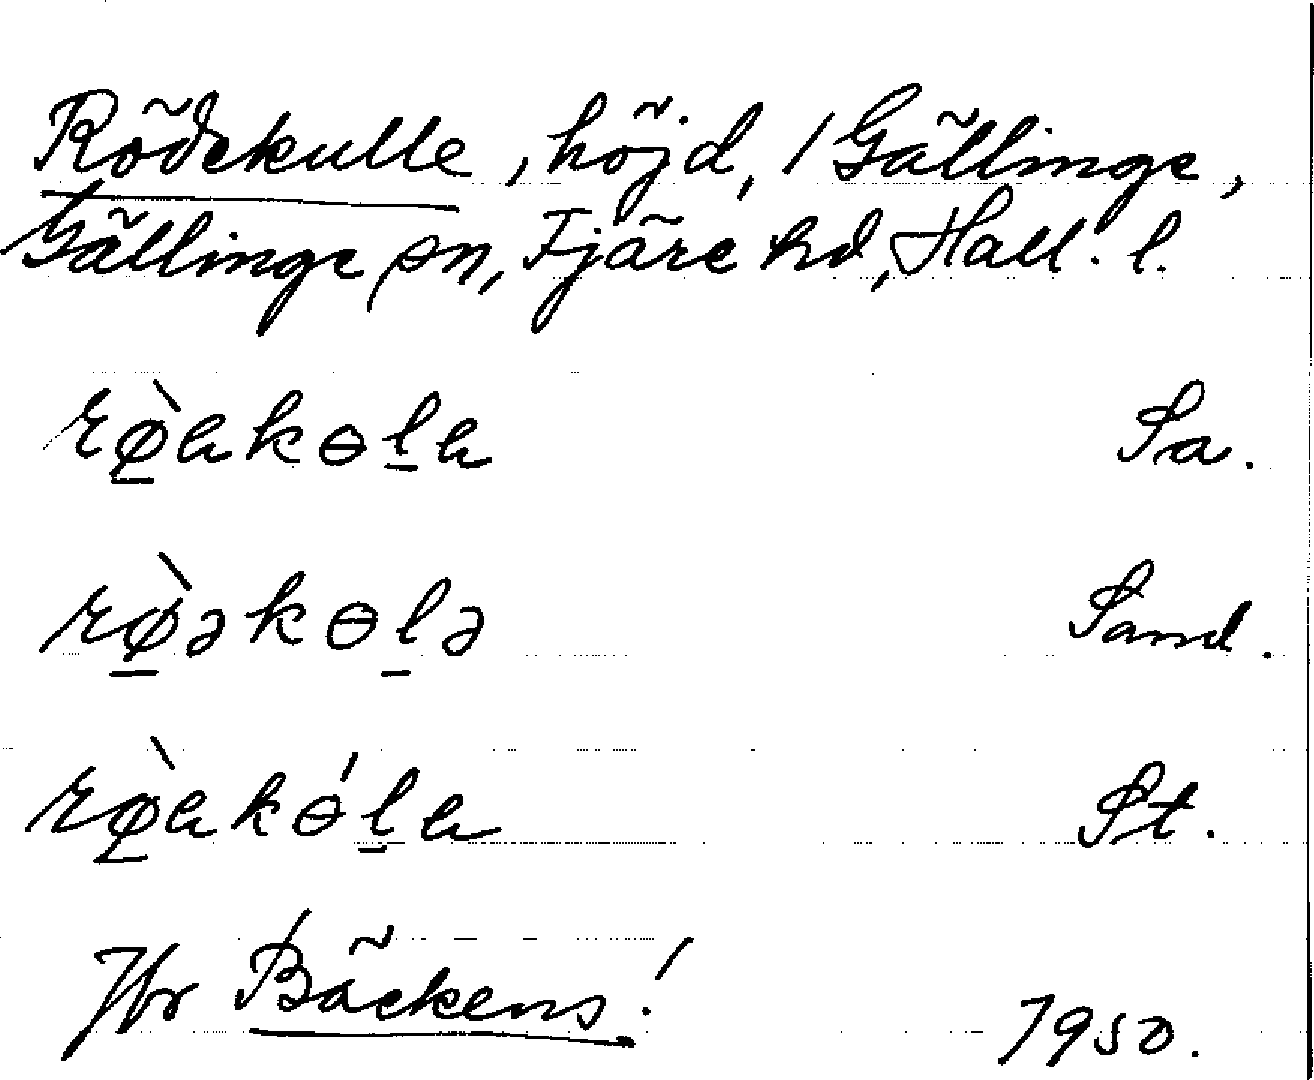 Rödekulle, höjd, / Gällinge,
Gällinge sn, Fjäre hd, Hall. l.
rø̠̀ak ɵl̠a Sa.
rø̠̀əkɵl̠ə Sand.
rø̠̀akɵ́l̠a St.
Jfr Bäckens! 1950.